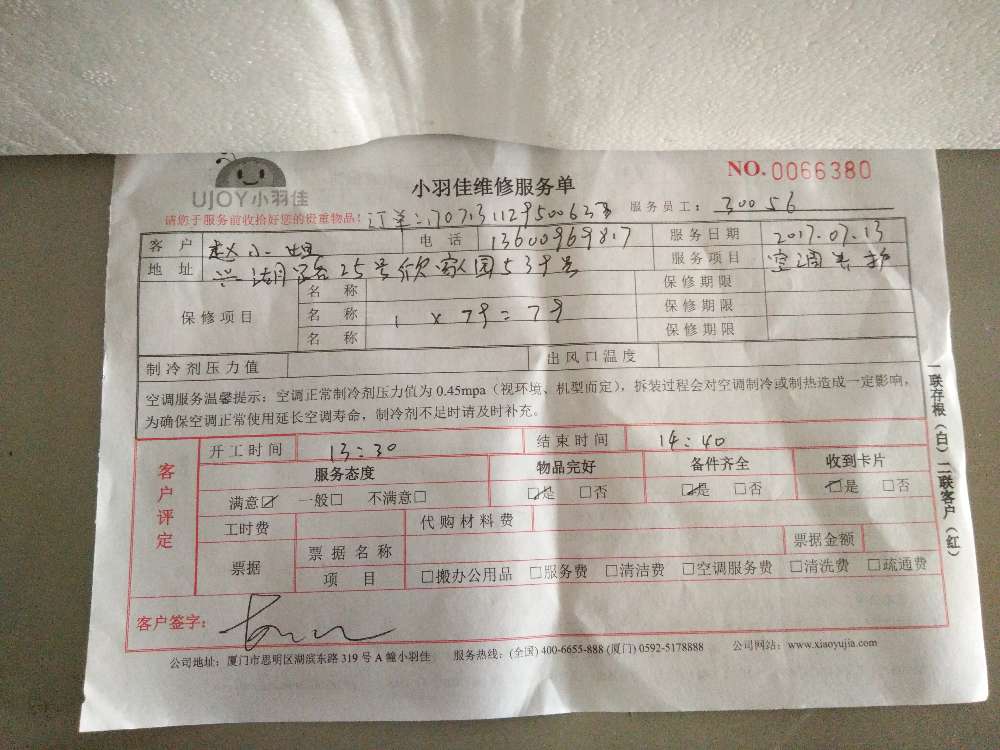 UJOY小羽佳
NO.0066380
小羽佳维修服务单
请您于服务前收拾好您的贵重物品！
订单：
服务员工： 30056
客户 赵小姐 电话 13600969817 服务日期 2017.07.13
地址 兴湖路25号欣家园539号 服务项目 空调养护
保修项目 名称 保修期限
名称 1 x 79 = 79 保修期限
名称 保修期限
制冷剂压力值 出风口温度
空调服务温馨提示：空调正常制冷剂压力值为 0.45mpa（视环境、机型而定），拆装过程会对空调制冷或制热造成一定影响，
为确保空调正常使用延长空调寿命，制冷剂不足时请及时补充。
一联存根（白）二联客户（红）
客户评定
开工时间 13:30 结束时间 14:40
服务态度 物品完好 备件齐全 收到卡片
满意☑ 一般□ 不满意□ ☑是 □否 ☑是 □否 ☑是 □否
工时费 代购材料费
票据 票据名称 票据金额
项目 □搬办公用品 □服务费 □清洁费 □空调服务费 □清洗费 □疏通费
客户签字：
公司地址：厦门市思明区湖滨东路 319 号 A 幢小羽佳 服务热线：(全国) 400-6655-888 (厦门) 0592-5178888 公司网站：www.xiaoyujia.com